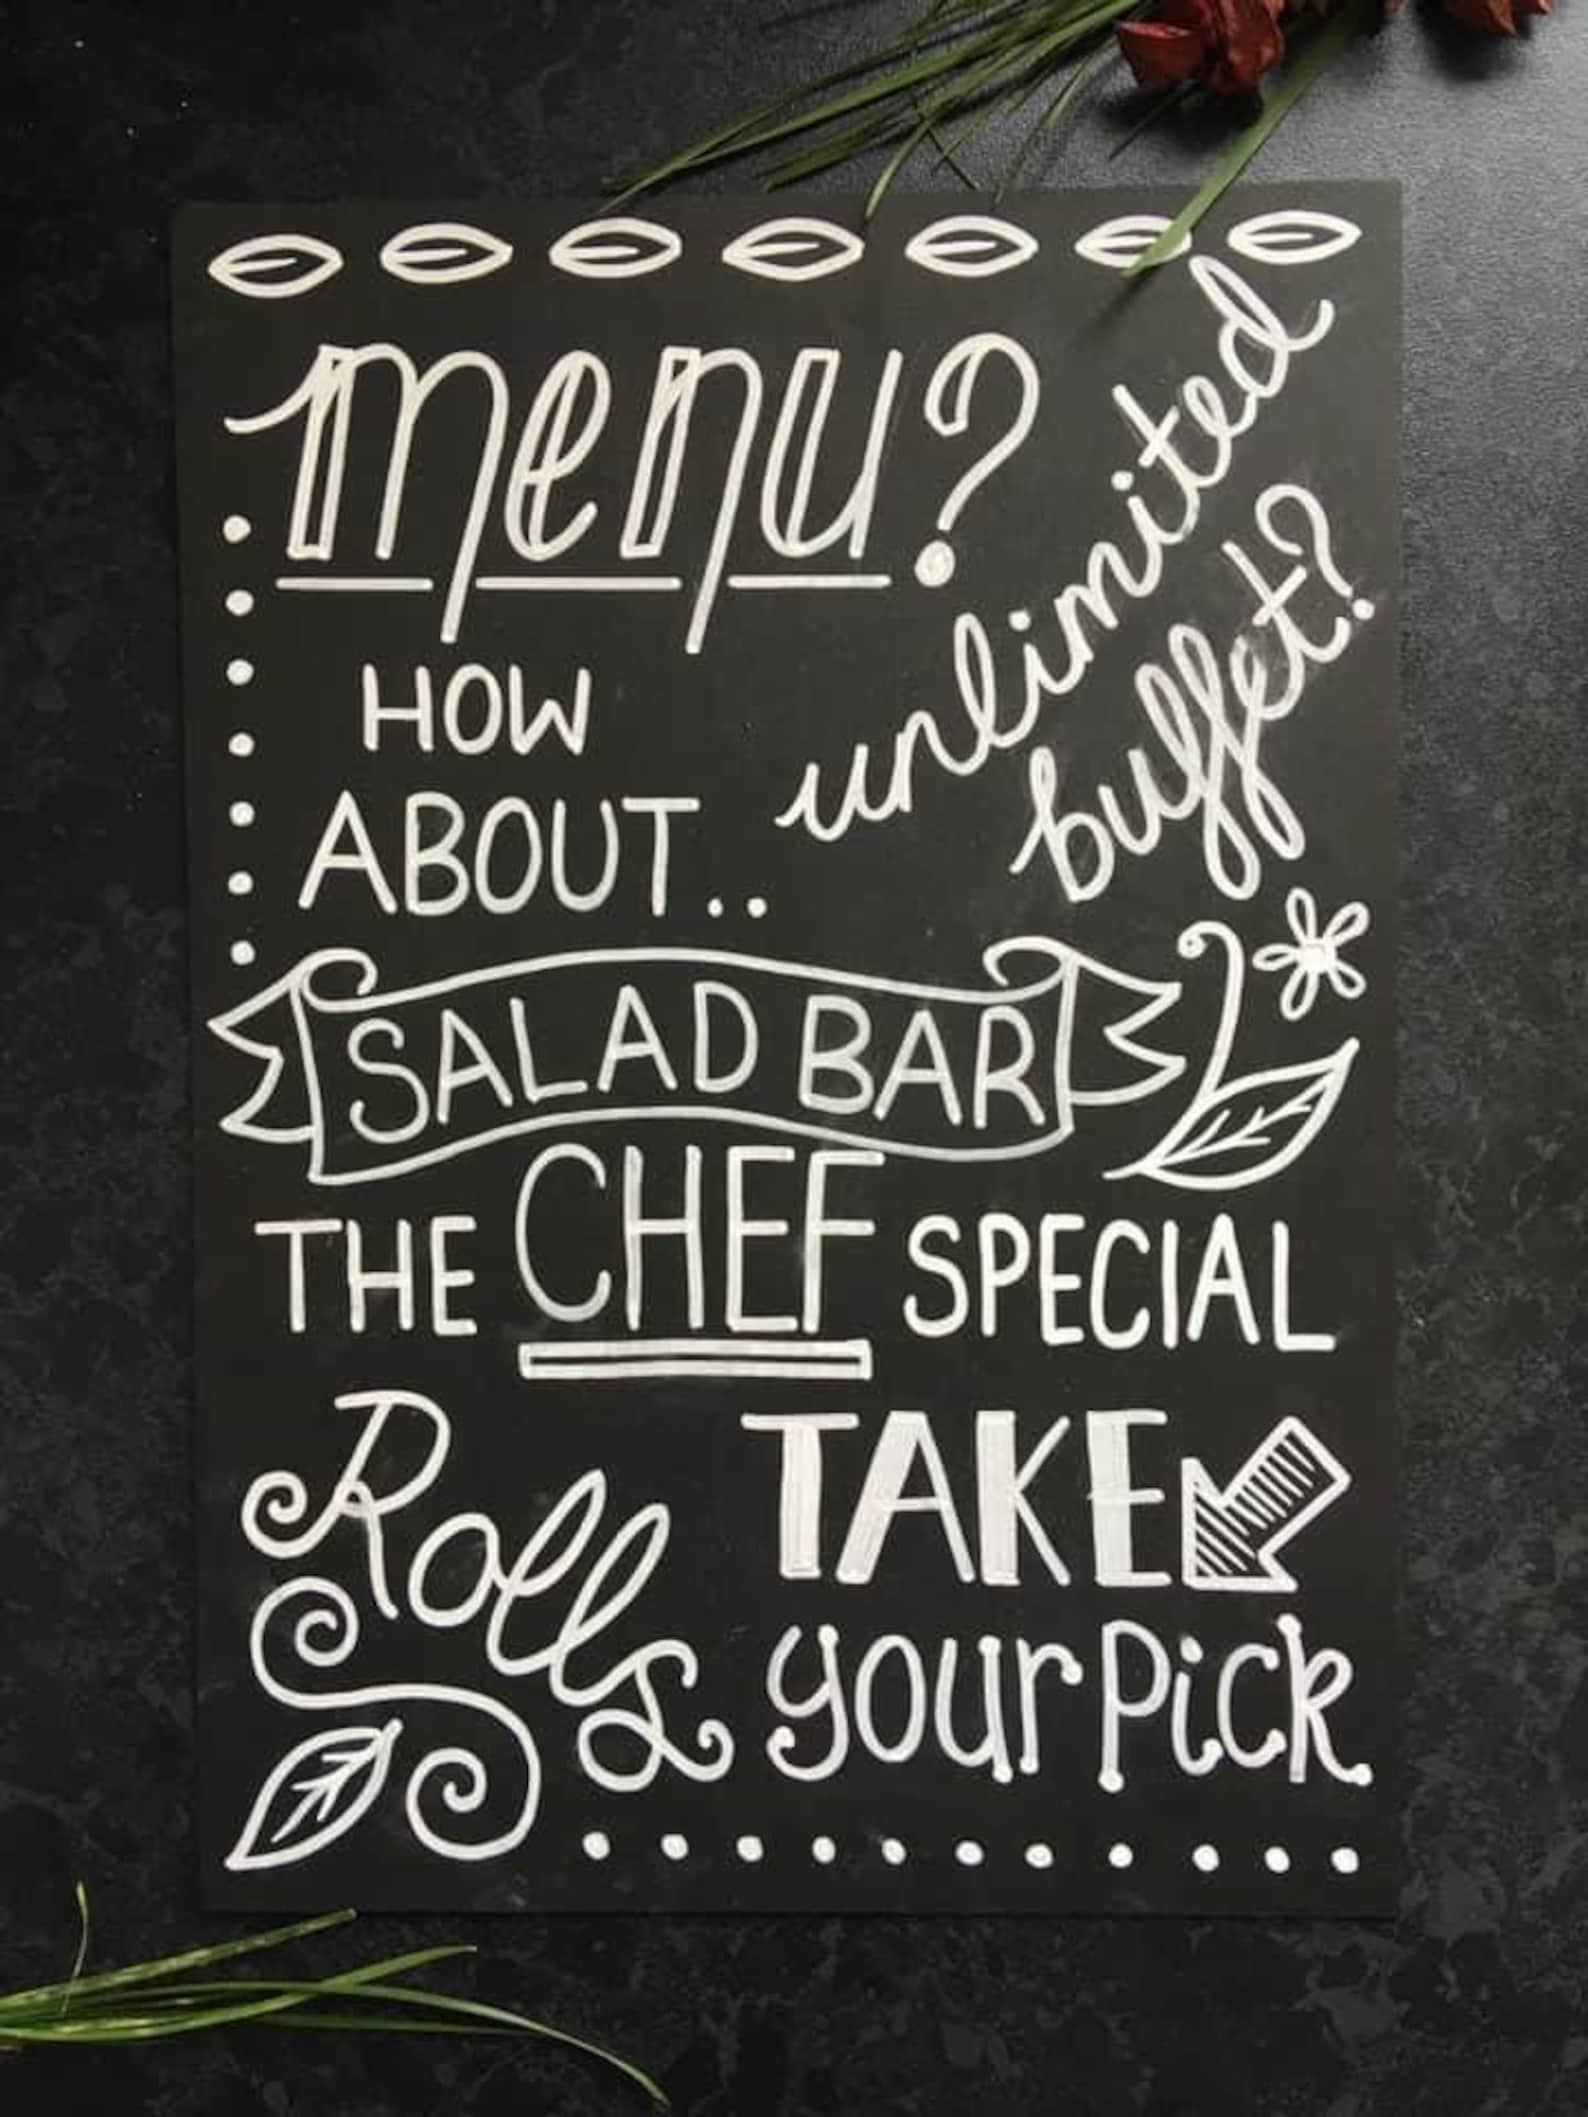 menu?
unlimited
buffet?
HOW
ABOUT..
SALAD BAR
THE CHEF SPECIAL
Rolls
TAKE
your Pick